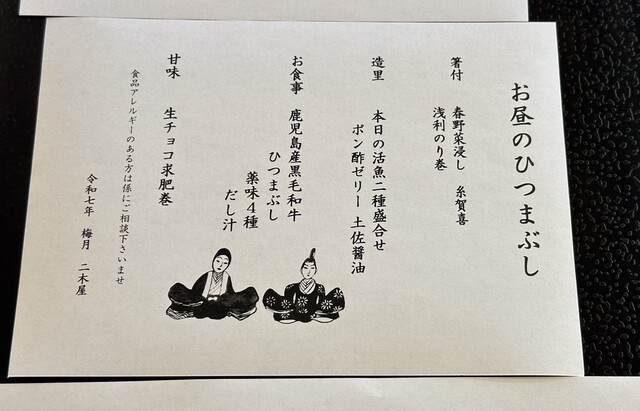 お昼のひつまぶし
箸付　春野菜浸し　糸賀喜
浅利のり巻
造里　本日の活魚二種盛合せ
ポン酢ゼリー　土佐醤油
お食事　鹿児島産黒毛和牛
ひつまぶし
薬味4種
だし汁
甘味　生チョコ求肥巻
食品アレルギーのある方は係にご相談下さいませ
令和七年　梅月　二木屋